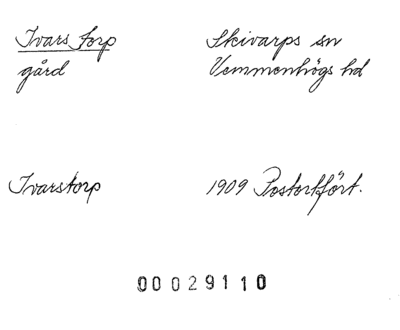 Ivars torp Skivarps sn
gård Vemmenhögs hd
Ivarstorp 1909 Postortfört.
00029110